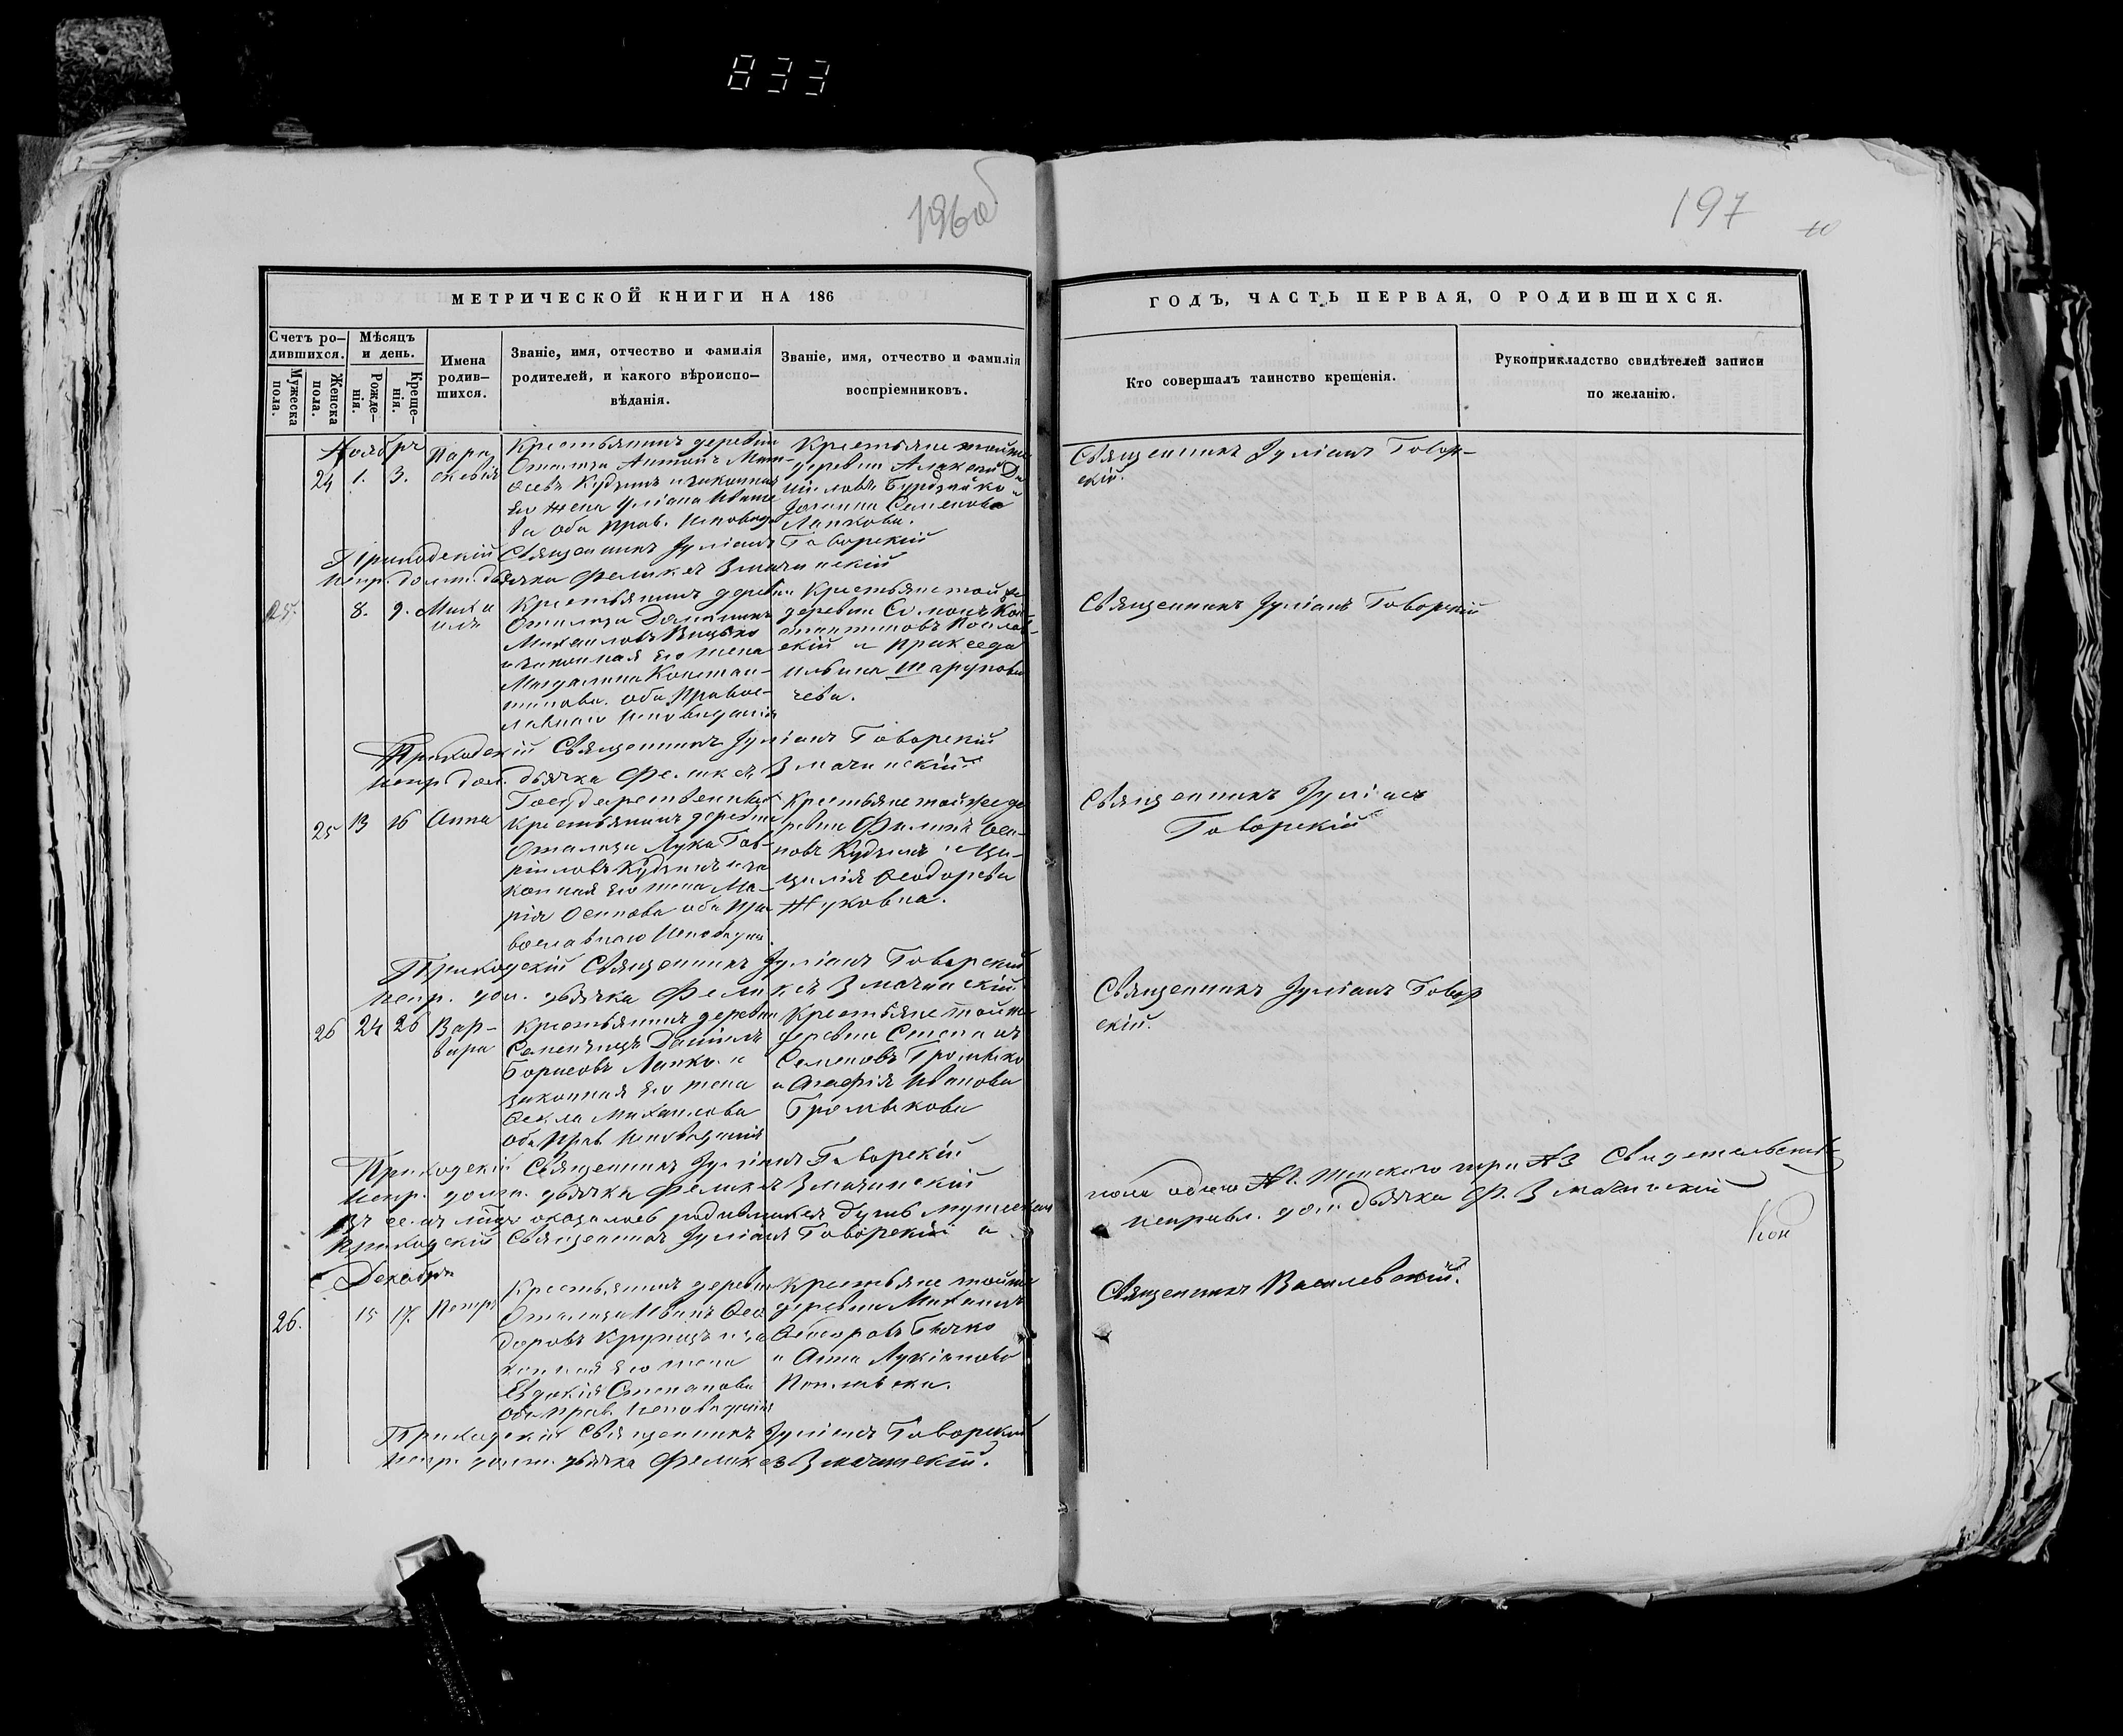 833
196об
197
МЕТРИЧЕСКОЙ КНИГИ НА 186
ГОДЪ, ЧАСТЬ ПЕРВАЯ, О РОДИВШИХСЯ.
Счетъ ро-
дившихся.
Мужеска
пола.
Женска
пола.
Мѣсяцъ
и день.
Рожде-
нія.
Креще-
нія.
Имена
родив-
шихся.
Званіе, имя, отчество и фамилія
родителей, и какого вѣроиспо-
вѣданія.
Званіе, имя, отчество и фамилія
воспріемниковъ.
Кто совершалъ таинство крещенія.
Рукоприкладство свидѣтелей записи
по желанію.
Ноябрь
24 1. 3.
Парас
кевія
Крестьянинъ деревни
Антонъ Мат-
Кудзинъ и законная
его жена Уліана
оба прав. Исповѣда
Крестьяне тойже
деревни Алексѣй Да
ниловъ и
Іоанна Семенова
Лапкова.
Священникъ Іуліанъ Говор-
скій.
Приходскій Священникъ Іуліанъ Говорскій
Испр. долж. дьячка Феликсъ Змачинскій
25. 8. 9.
Миха
илъ
Крестьянинъ деревни
Михаиловъ
и законная его жена
Магдалина Констан-
тинова. оба Правос-
лавнаго Исповѣданія
Крестьяне тойже
деревни Симонъ Кон-
стантиновъ
скій и Пракседа
Ильина Шарупови
чева.
Священникъ Іуліанъ Говорскій
Приходскій Священникъ Іуліанъ Говорскій
Испр. дол. дьячка Феликсъ Змачинскій
25 13 16 Анна
Государственный
Крестьянинъ деревни
Лука Гав-
ріиловъ Кудзинъ и за
конная его жена Ма-
рія Осипова оба Пра
вославнаго Исповѣдан.
Крестьяне тойже де
ревни Филипъ Оси-
повъ Кудзинъ и Це-
цилія Ѳеодорова
Жуковна.
Священникъ Іуліанъ
Говорскій
Приходскій Священникъ Іуліанъ Говорскій
Испр. дол. дьячка Феликсъ Змачинскій
26 24 26
Вар-
вара
Крестьянинъ деревни
Даніилъ
Борисовъ Лапко и
законная его жена
Ѳекла Михаилова
оба Прав. Исповѣданія
Крестьяне тойже
деревни Степанъ
Семеновъ Громыко
и Агафія Иванова
Громыкова
Священникъ Іуліанъ Говор
скій.
Приходскій Священникъ Іуліанъ Говорскій
Испр. долж. дьячка Феликсъ Змачинскій
Въ семъ мѣсяцѣ оказалось родившихся душъ мужескаго
пола одно № 1. Женскаго три № 3 Свидетельств.
Приходскій Священникъ Іуліанъ Говорскій и
исправл. дол. дьячка Ф. Змачинскій
Декабрь
26. 15 17. Петръ
Крестьянинъ деревни
Иванъ Ѳео
доровъ и за
конная его жена
Евдокія Степанова
оба Прав. Исповѣданія
Крестьяне тойже
деревни Михаилъ
Ѳеодоровъ
и Анна Лукіанова
Священникъ Василевскій.
Приходскій Священникъ Іуліанъ Говорскій
Испр. долж. дьячка Феликсъ Змачинскій.